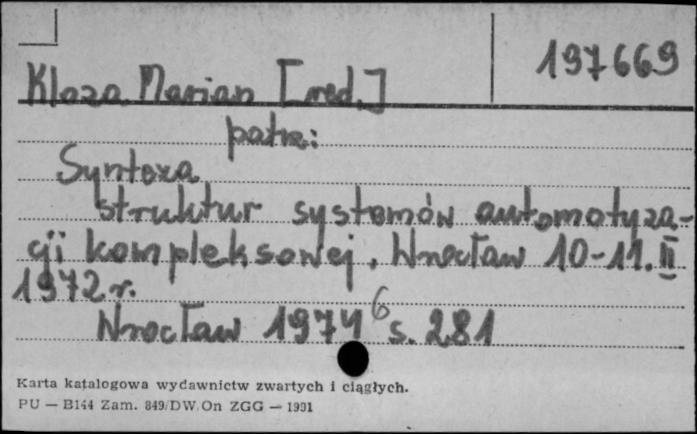 197669
Kloza Marian [red.]
patrz:
Synteza
struktur systemów automatyza-
cji kompleksowej. Wrocław 10-11.II
1972 r.
Wrocław 1974 6 s. 281
Karta katalogowa wydawnictw zwartych i ciągłych.
PU — B144 Zam. 849/DW/On ZGG — 1991